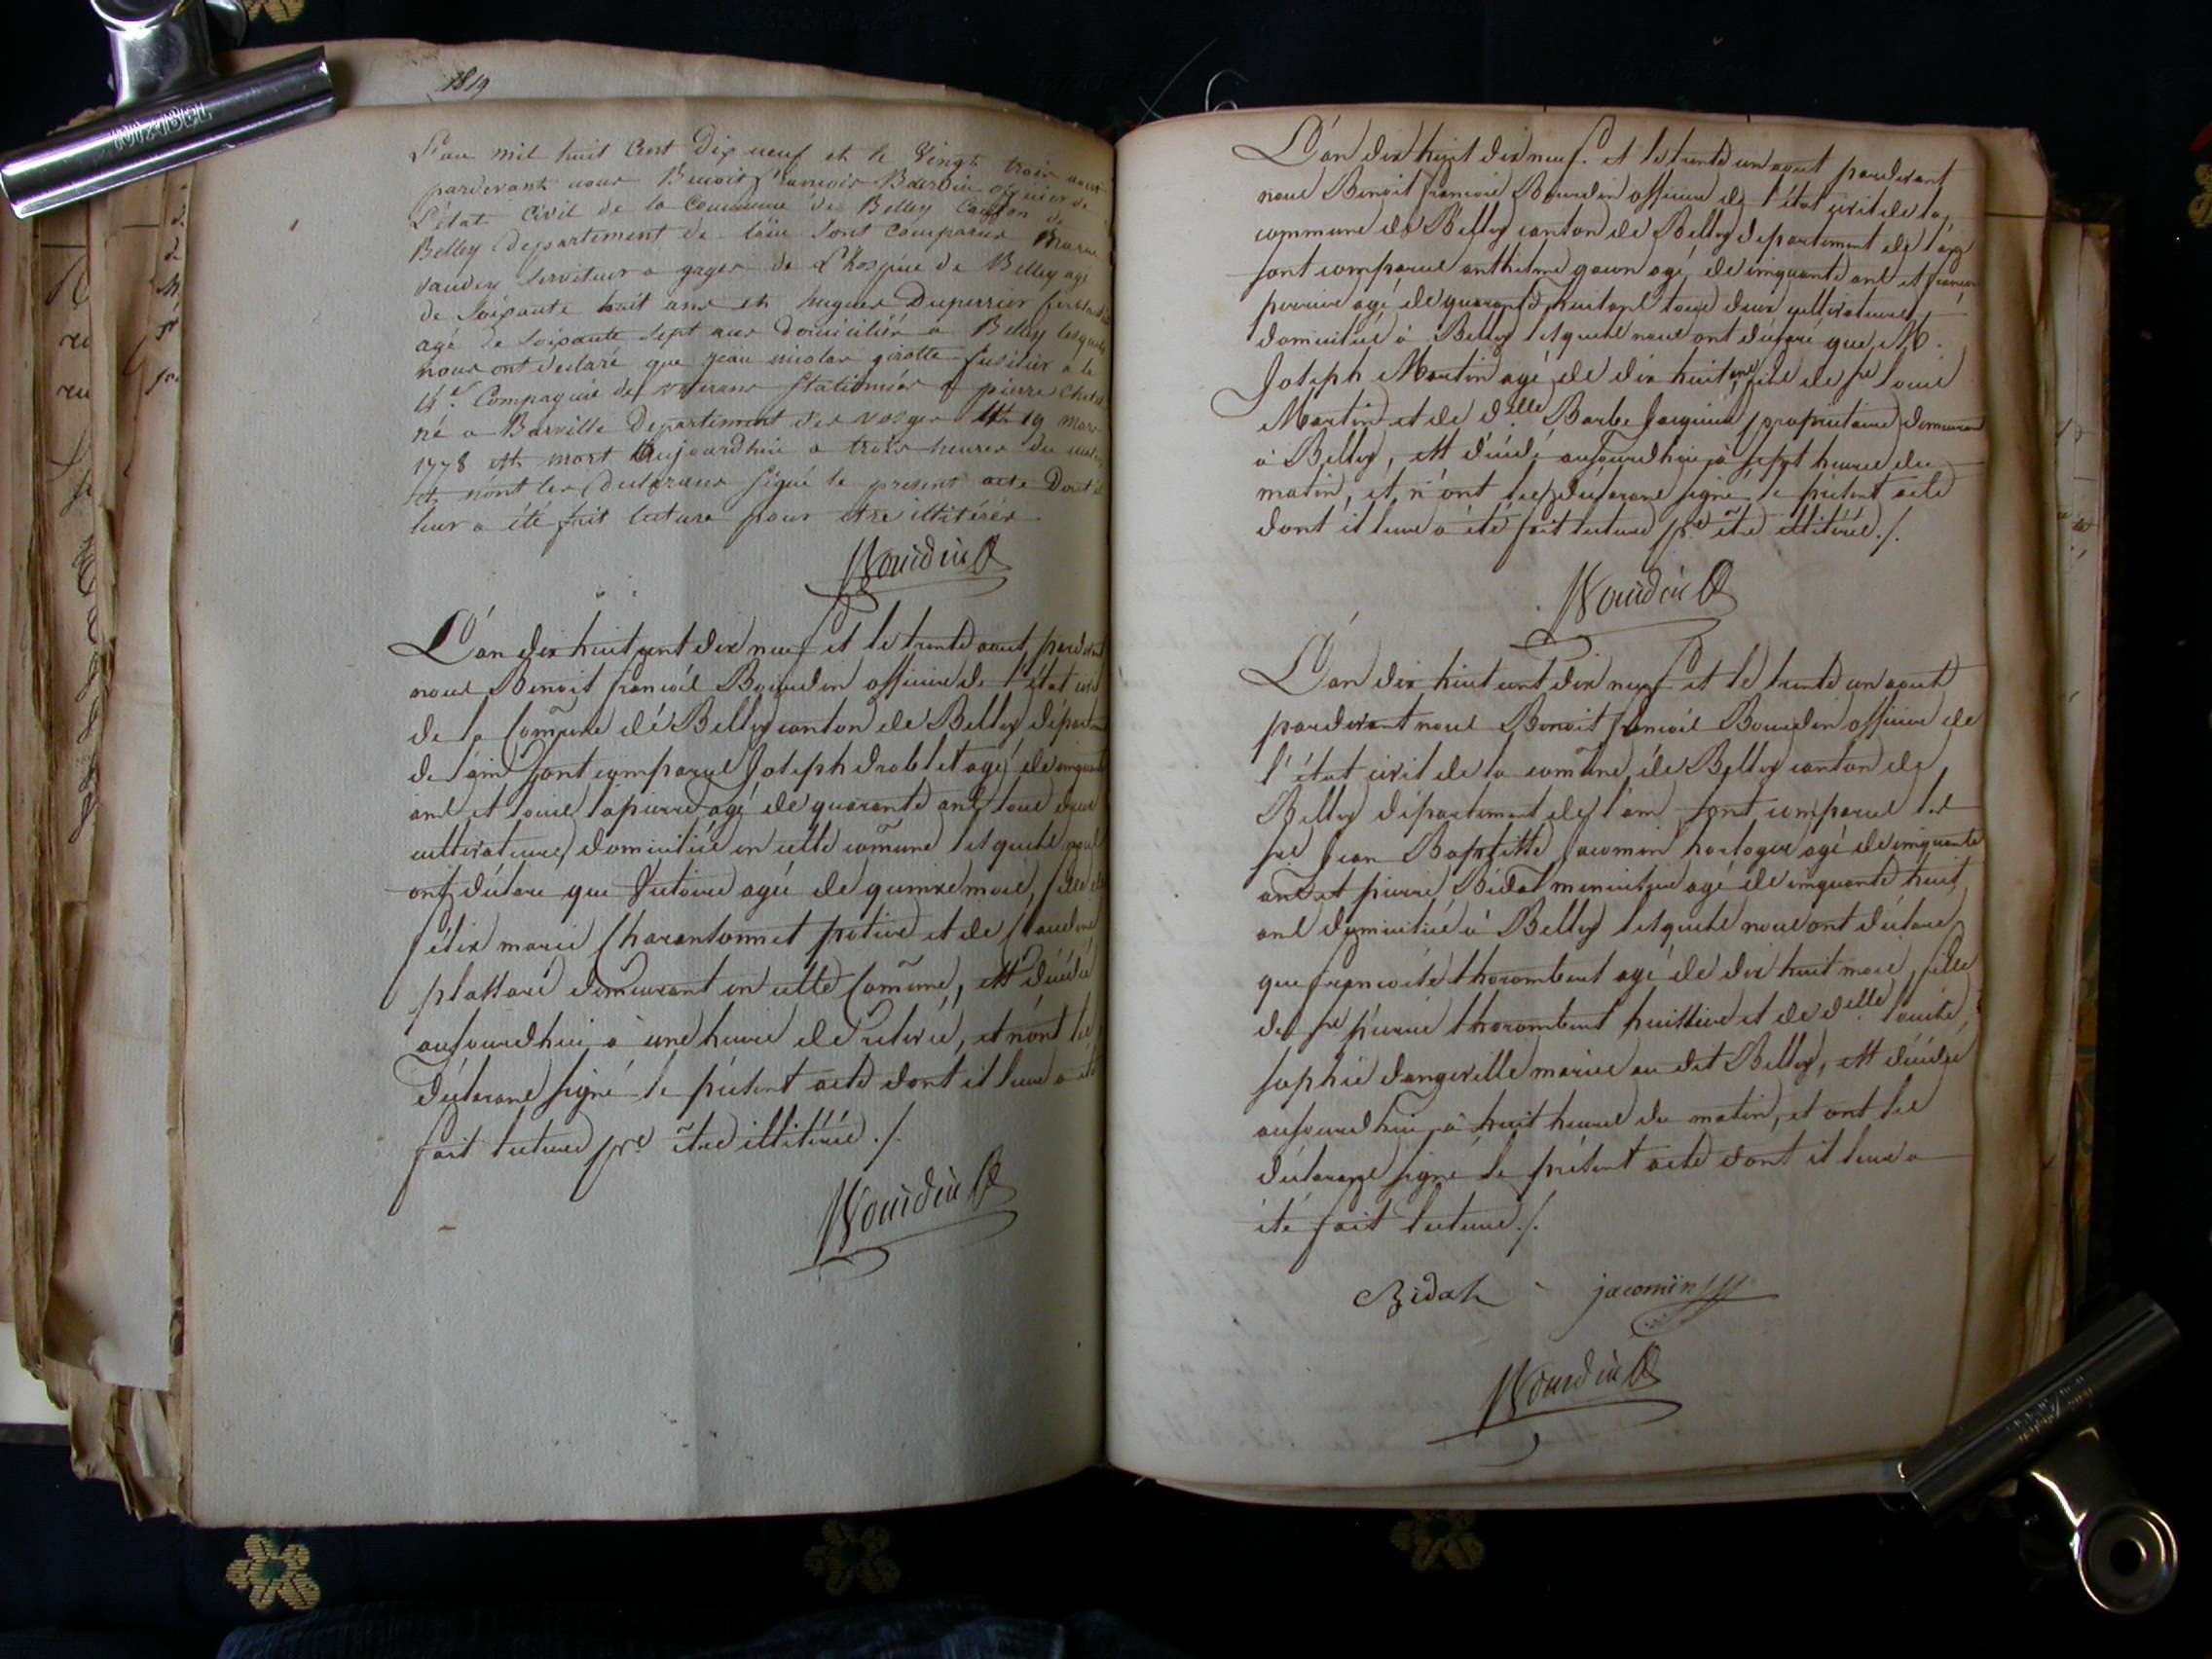 1819
L'an mil huit Cent Dix neuf et le Vingt trois aout
pardevant nous Benoit francois Bourdin officier de
L'état Civil de la Commune de Belley Canton de
Belley departement de l'ain sont comparus
serviteur a gages de L'hospice de Belley agé
de soixante huit ans et hugues Duperrier
agé de soixante sept ans domiciliés a Belley lesquels
nous ont declaré que jean nicolas girotte fusilier a la
14e. Compagnie des veterans stationnée a pierre chatel
né a Barville Departement des vosges le 19 mars
1778 est mort aujourdhui a trois heures du matin
et n'ont les declarans signé le present acte Dont il
leur a été fait lecture pour etre illitérés
Bourdin
L'an dix huit cent dix neuf et le trente aout, pardevant
nous Benoit francois Bourdin officier de l'état civil
de la Comune de Belley canton de Belley départ
de l'ain sont comparus Joseph drablet agé de cinquante
ans et louis lapierre agé de quarante ans tous deux
cultivateurs domiciliés en cette comune lesquels nous
ont déclaré que Victoire agée de quinze mois, fille de
félix marie Charantonnet et de Claudine
demeurant en cette Comune, est décédée
aujourdhui à une heure de relevée, et n'ont les
déclarans signé le présent acte dont il leur a été
fait lecture pr. être illitérés ./.
Bourdin
L'an dix huit dix neuf. et le trente un aout pardevant
nous Benoit francois Bourdin officier de l'état civil de la
commune de Belley canton de Belley departement de l'ain
sont comparus anthelme agé de cinquante ans et francois
perrier agé de quarante huit ans tous deux cultivateurs
domiciliés à Belley lesquels nous ont déclaré que M.
Joseph Martin agé de dix huit ans fils de sr louis
Martin et de dlle. Barbe Jacquin propriétaires demeurant
à Belley, est décédé aujourdhui à sept heures du
matin, et n'ont les déclarans signé le présent acte
dont il leur a été fait lecture pr être illitérés ./.
Bourdin
L'an dix huit cent dix neuf et le trente un aout
pardevant nous Benoit francois Bourdin officier de
l'état civil de la comune de Belley canton de
Belley département de l'ain sont comparus les
srs Jean Baptiste Jacomin horloger agé de cinquante
ans et pierre Bidal menuisier agé de cinquante huit
ans domiciliés à Belley lesquels nous ont déclaré
que francoise thorombert agé de dix huit mois, fille
de sr pierre thorombert huissier et de dlle. louise
sophie dangeville mariés au dit Belley, est décédée
aujourdhui à huit heures du matin, et ont les
déclarans signé le présent acte dont il leur a
été fait lecture ./.
Bidal jacomin
Bourdin